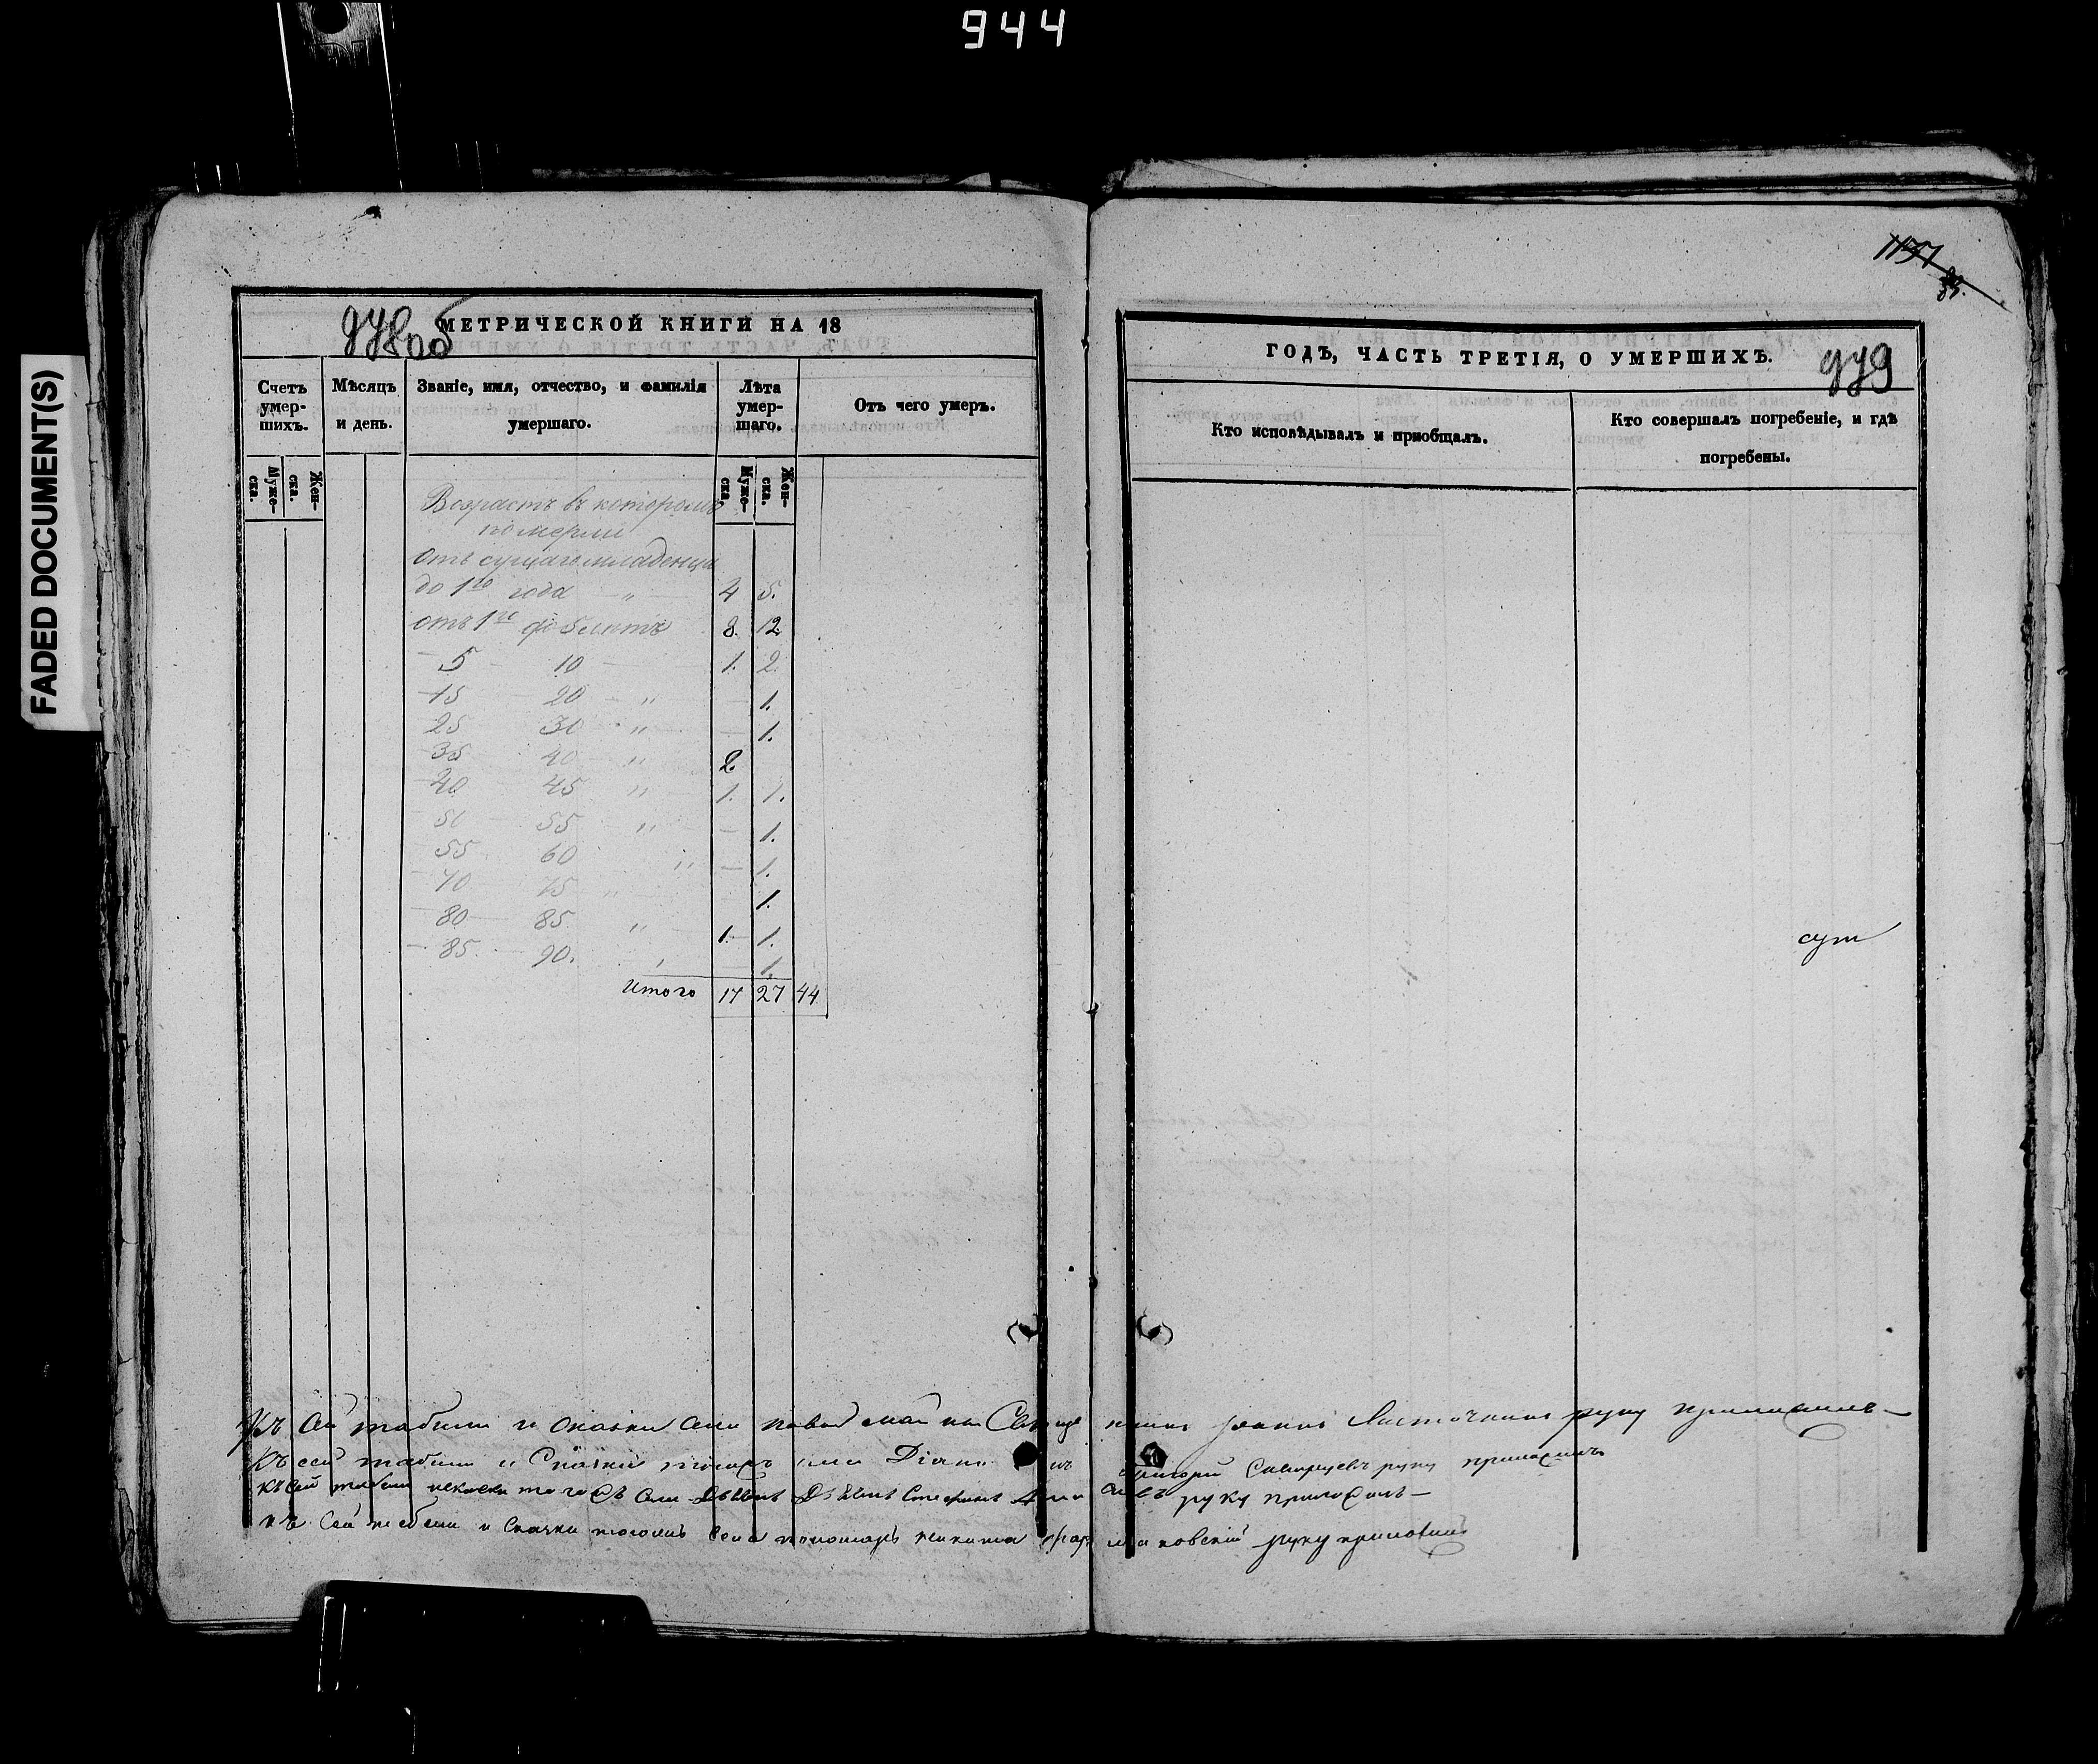 944
FADED DOCUMENT(S)
978об
МЕТРИЧЕСКОЙ КНИГИ НА 18
Счетъ умер-
шихъ.
Мѣсяцъ
и день.
Званіе, имя, отчество, и фамилія
умершаго.
Лѣта
умер-
шаго.
Отъ чего умеръ.
Муже-
ска.
Жен-
ска.
Муже-
ска.
Жен-
ска.
Возрастъ въ которомъ
померли
отъ сущаго младенца
до 1го года — " — 4 5.
отъ 1го до 5 лѣтъ 8. 12
— 5 — 10 — 1. 2.
— 15 — 20 — " — 1.
— 25 — 30 — " — 1.
— 35 — 40 — " 2.
— 40 — 45 — " — 1. 1.
— 50 — 55 — " — 1.
— 55 — 60 — " — 1.
— 70 — 75 — " 1.
— 80 — 85 — " — 1. 1.
— 85. — 90. — " 1.
Итого 17 27 44
1137
979
ГОДЪ, ЧАСТЬ ТРЕТІЯ, О УМЕРШИХЪ.
Кто исповѣдывалъ и пріобщалъ.
Кто совершалъ погребеніе, и гдѣ
погребены.
сут
Къ сей табели и сказки села Іоаннъ Ласточкинъ руку приложилъ—
Къ сей табели и Сказки тогожъ села Діаконъ Григорій руку приложилъ
къ сей табели и сказки тогожъ села Стефанъ руку приложилъ—
къ сей табели и сказки тогожъ села пономарь Никита руку приложилъ